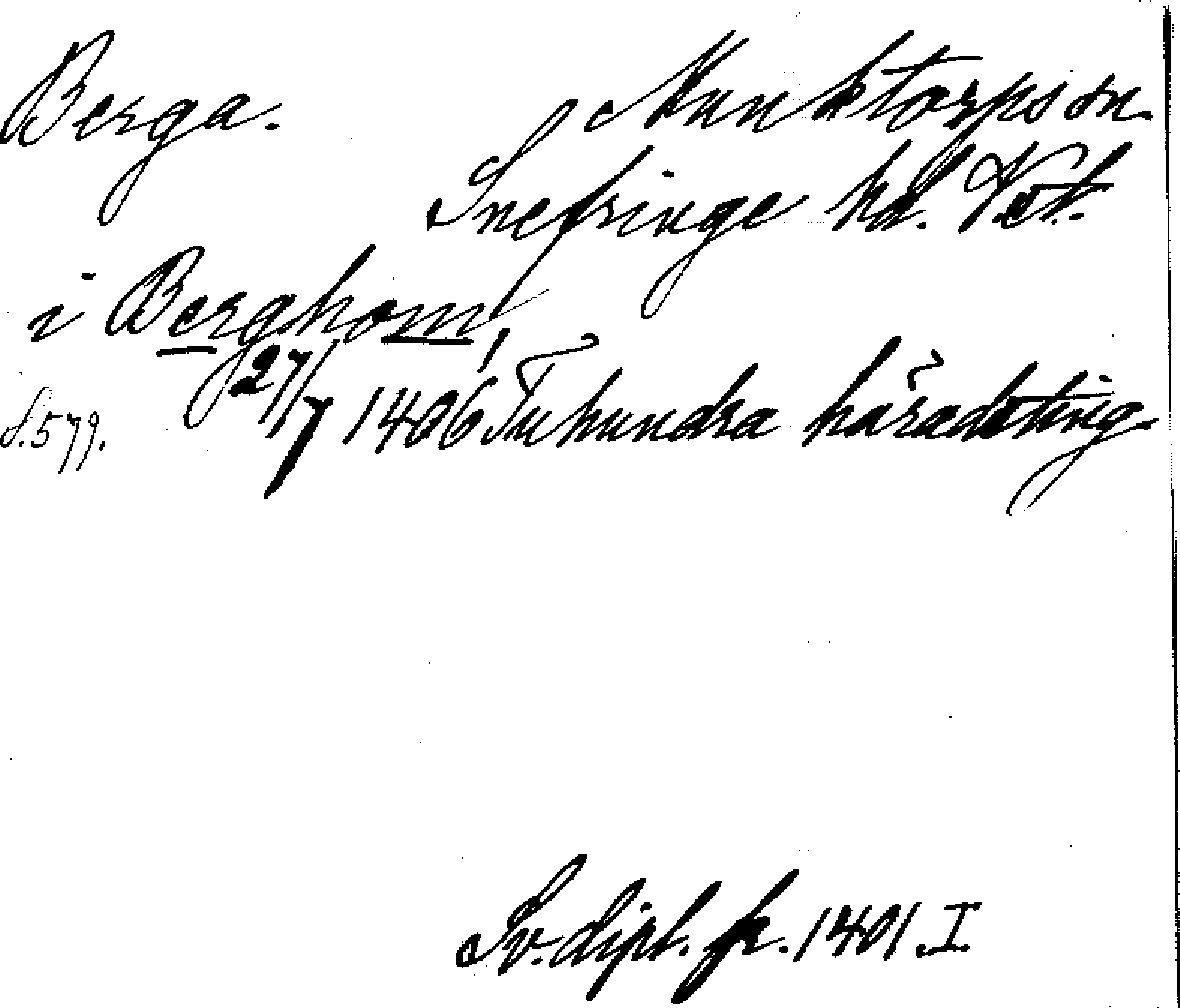 Berga. Munktorps sn.
Snefringe hd. Vstm.
i Berghom,
s. 579. 27/7 1406 Tuhundra häradsting
Sv. dipl. fr. 1401. I